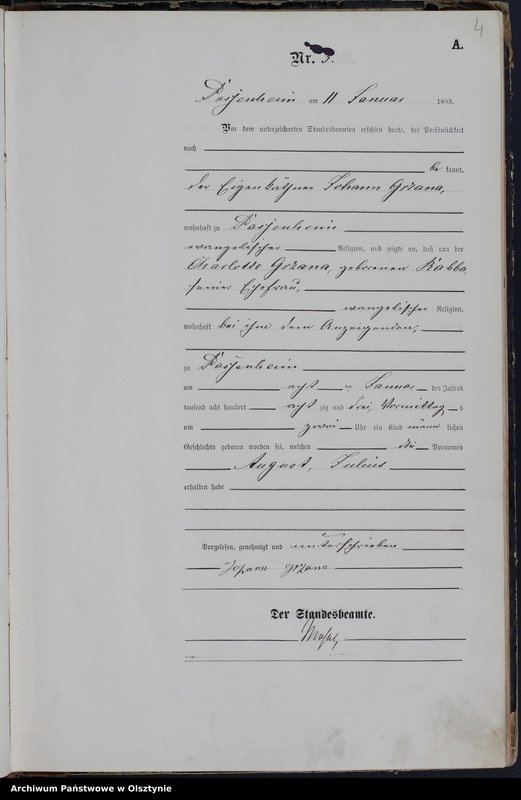 4
A.
Nr.
Passenheim am 11 Januar 1883.
Vor dem unterzeichneten Standesbeamten erschien heute, der Persönlichkeit
nach
be kannt,
der Eigenkäthner Johann Grzana,
wohnhaft zu Passenheim
evangelischer Religion, und zeigte an, daß von der
Charlotte Grzana, geborenen Kabba,
seiner Ehefrau,
evangelischer Religion,
wohnhaft bei ihm dem Anzeigenden,
zu Passenheim
am acht ten Januar des Jahres
tausend acht hundert acht zig und drei, Vormittag s
um zwei Uhr ein Kind männ lichen
Geschlechts geboren worden sei, welches die Vornamen
August, Julius
erhalten habe
Vorgelesen, genehmigt und unterschrieben
Johann Grzana
Der Standesbeamte.
Archiwum Państwowe w Olsztynie